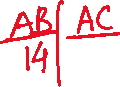 AB AC
14